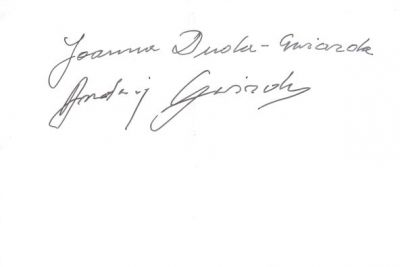 Joanna Duda-Gwiazda
Andrzej Gwiazda